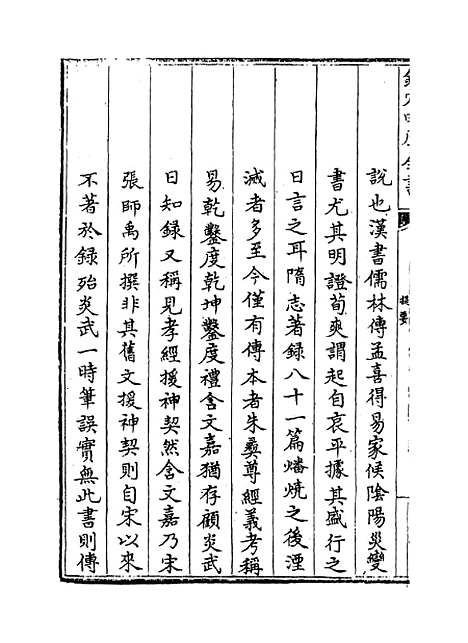 欽定四庫全書
提要
說也漢書儒林傳孟喜得易家候隂陽災變
書尤其明證荀爽謂起自哀平據其盛行之
日言之耳隋志著録八十一篇燔燒之後湮
滅者多至今僅有傳本者朱彝尊經義考稱
易乾鑿度乾坤鑿度禮含文嘉猶存顧炎武
日知録又稱見孝經援神契然含文嘉乃宋
張師禹所撰非其舊文援神契則自宋以來
不著於録殆炎武一時筆誤實無此書則傳